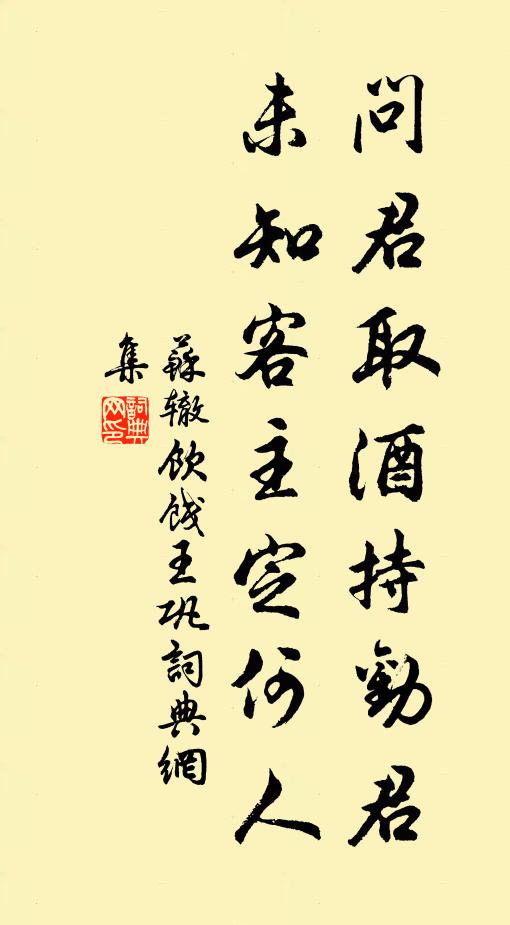 問君取酒持勸君
未知客主定何人
蘇辙飲餞王巩詞典網
集
詞典
网印